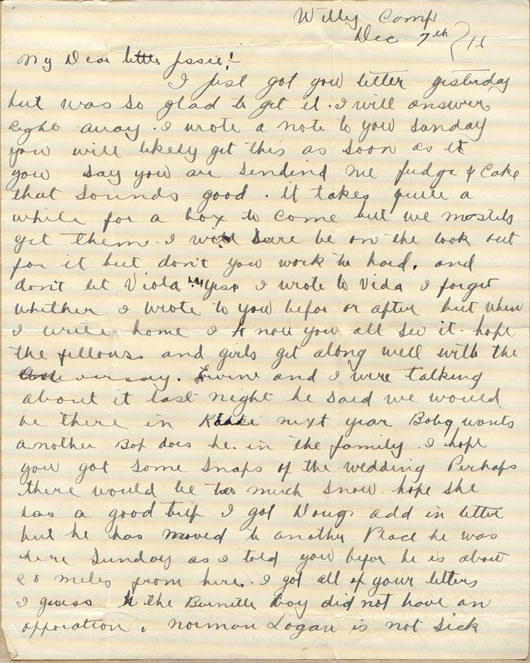 Witly Camp
Dec 7th /16
My Dear little Jessie!
I just got you letter yesterday
but was so glad to get it. I will answer
right away. I wrote a note to you sunday
you will likely get this as soon as it
you say you are sendind me fudge & cake
that sounds good. it takes quite a
while for a box to come but we mostly
get them. I will sure be on the look out
for it but don't you work to hard. and
don't let Viola. yes I wrote to Vida I forget
whether I wrote to you befor or after but when
I write home I know you all see it. hope
the fellows and girls get along well with the
. and I were talking
about it last night he said we would
be there in next year Boby wants
another Bop does he. in the family. I hope
you got some snaps of the wedding Perhaps
there would be to much snow. hope she
has a good trip I got Dougs add in letter
but he has moved to another Place he was
here Sunday as I told you befor he is about
20 miles from here. I got all of your letters
I guess the Burnett boy did not have an
opporation. norman Logan is not sick